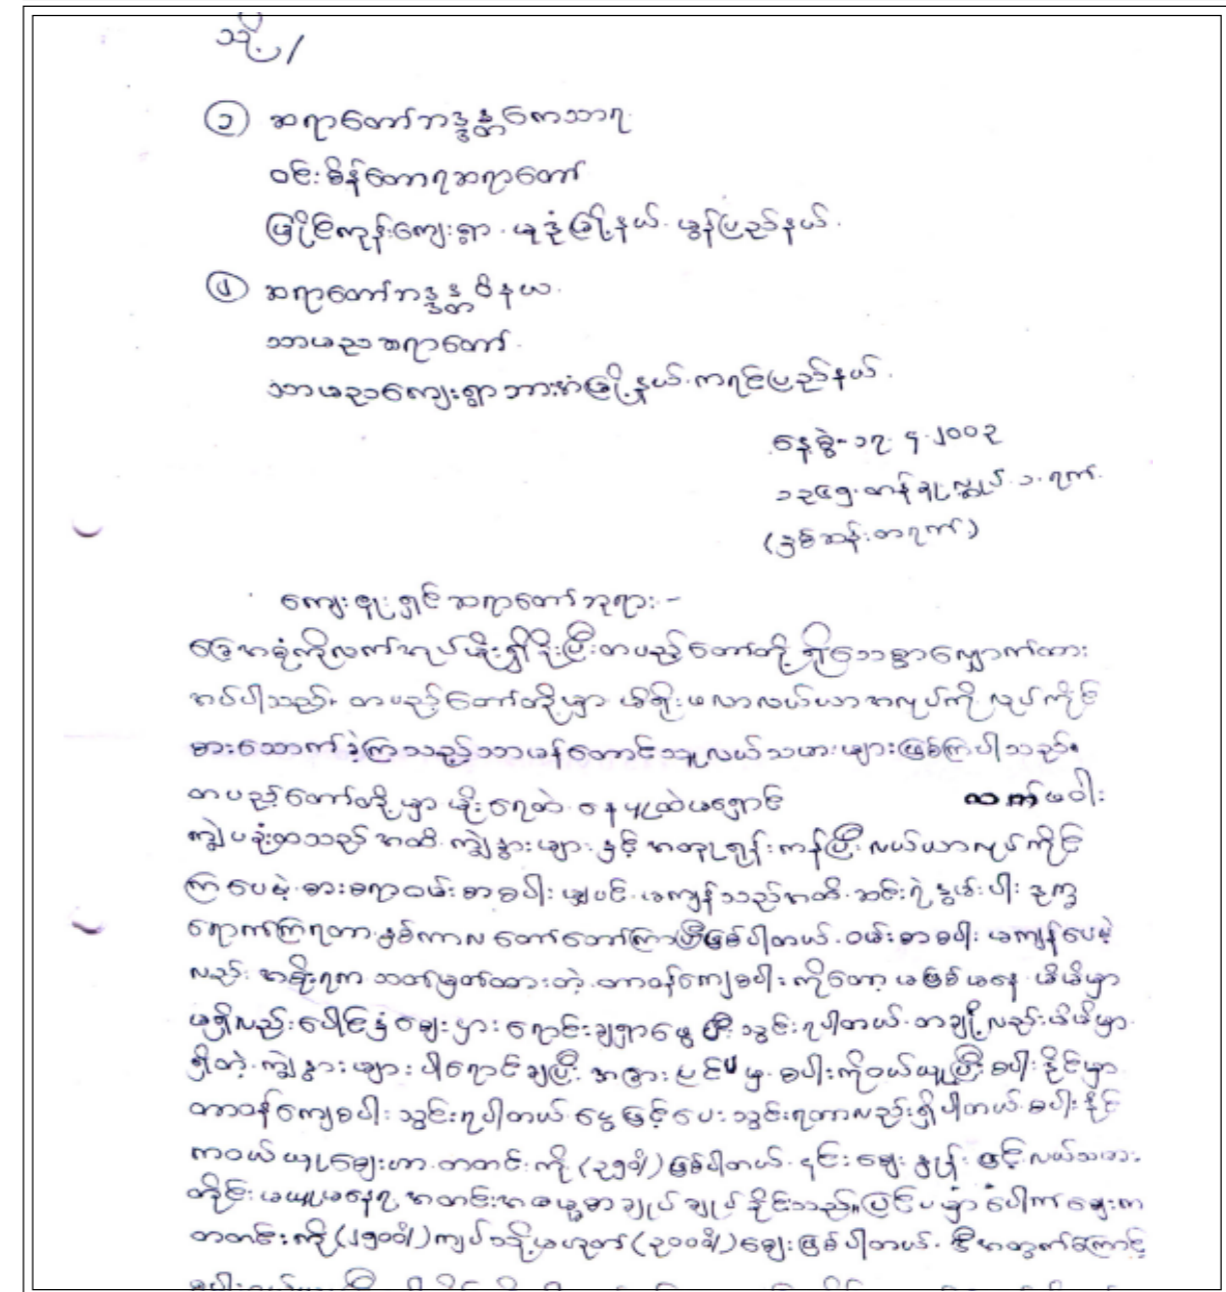 သို့/
၁ ဆရာတော်ဘဒ္ဒန္တကေသာရ
ဝင်းစိန်တောရဆရာတော်
ကုန်းကျေးရွာ၊ မုဒုံမြို့နယ်၊ မွန်ပြည်နယ်၊
၂ ဆရာတော်ဘဒ္ဒန္တဝိနယ၊
သာမညဆရာတော်၊
သာမညကျေးရွာဘားအံမြို့နယ်၊ ကရင်ပြည်နယ်၊
နေ့စွဲ-၁၇.၄.၂၀၀၃
၁၃၆၅ တန်ခူးလ္ဆုပ် ၁ ရက်
(နှစ်ဆန်းတရက်)
ကျေးဇူးရှင်ဆရာတော်ဘုရား-
ခြေအစုံကိုလက်အုပ်မိုး၍ရှိခိုးပြီးတပည့်တော်တို့ ရိုသေစွာလျှောက်ထား
အပ်ပါသည်၊ တပည့်တော်တို့မှာ မိရိုးဖလာလယ်ယာအလုပ်ကို လုပ်ကိုင်
စားသောက်ခဲ့ကြသည့်သာမန်တောင်သူလယ်သမားများဖြစ်ကြပါသည်။
တပည့်တော်တို့မှာ မိုးရေထဲ နေပူထဲမရှောင် လက်မဝါး
ကျွဲပခုံးထသည်အထိ ကျွဲနွားများနှင့် အတူရုန်းကန်ပြီး လယ်ယာလုပ်ကိုင်
ကြပေမဲ့ စားစရာဝမ်းစာစပါးမျှပင် မကျန်သည်အထိ ဆင်းရဲနွမ်းပါး ဒုက္ခ
ရောက်ကြရတာ နှစ်ကာလ တော်တော်ကြာပြီဖြစ်ပါတယ် ဝမ်းစာစပါး မကျန်ပေမဲ့
လည်း အစိုးရက သတ်မှတ်ထားတဲ့ တာဝန်ကျေစပါးကိုတော့ မဖြစ်မနေ မိမိမှာ
မရှိလည်းပေါင်နှံချေးငှားရောင်းချရှာဖွေပြီး သွင်းရပါတယ် တချို့လည်းမိမိမှာ
ရှိတဲ့ ကျွဲနွားများပါရောင်းချပြီး အခြားပြင်ပမှ စပါးကိုဝယ်ယူပြီးစပါးဒိုင်မှာ
တာဝန်ကျေစပါးသွင်းရပါတယ် ငွေဖြင့်ပေးသွင်းရတာလည်းရှိပါတယ် စပါးဒိုင်
ကဝယ်ယူဈေးဟာ တတင်းကို (၃၅၀ိ/)ဖြစ်ပါတယ် ၎င်းဈေးနှုန်းဖြင့်လယ်သမား
တိုင်းမယူမနေရ အတင်းအဓမ္မစာချုပ်ချုပ်ခိုင်းသည်။ပြင်ပမှာပေါက်ဈေးက
တတင်းကို(၂၅၀၀ိ/)ကျပ်သို့မဟုတ်(၃၀၀ိ/)ဈေးဖြစ်ပါတယ် ဒီအတွက်ကြောင့်